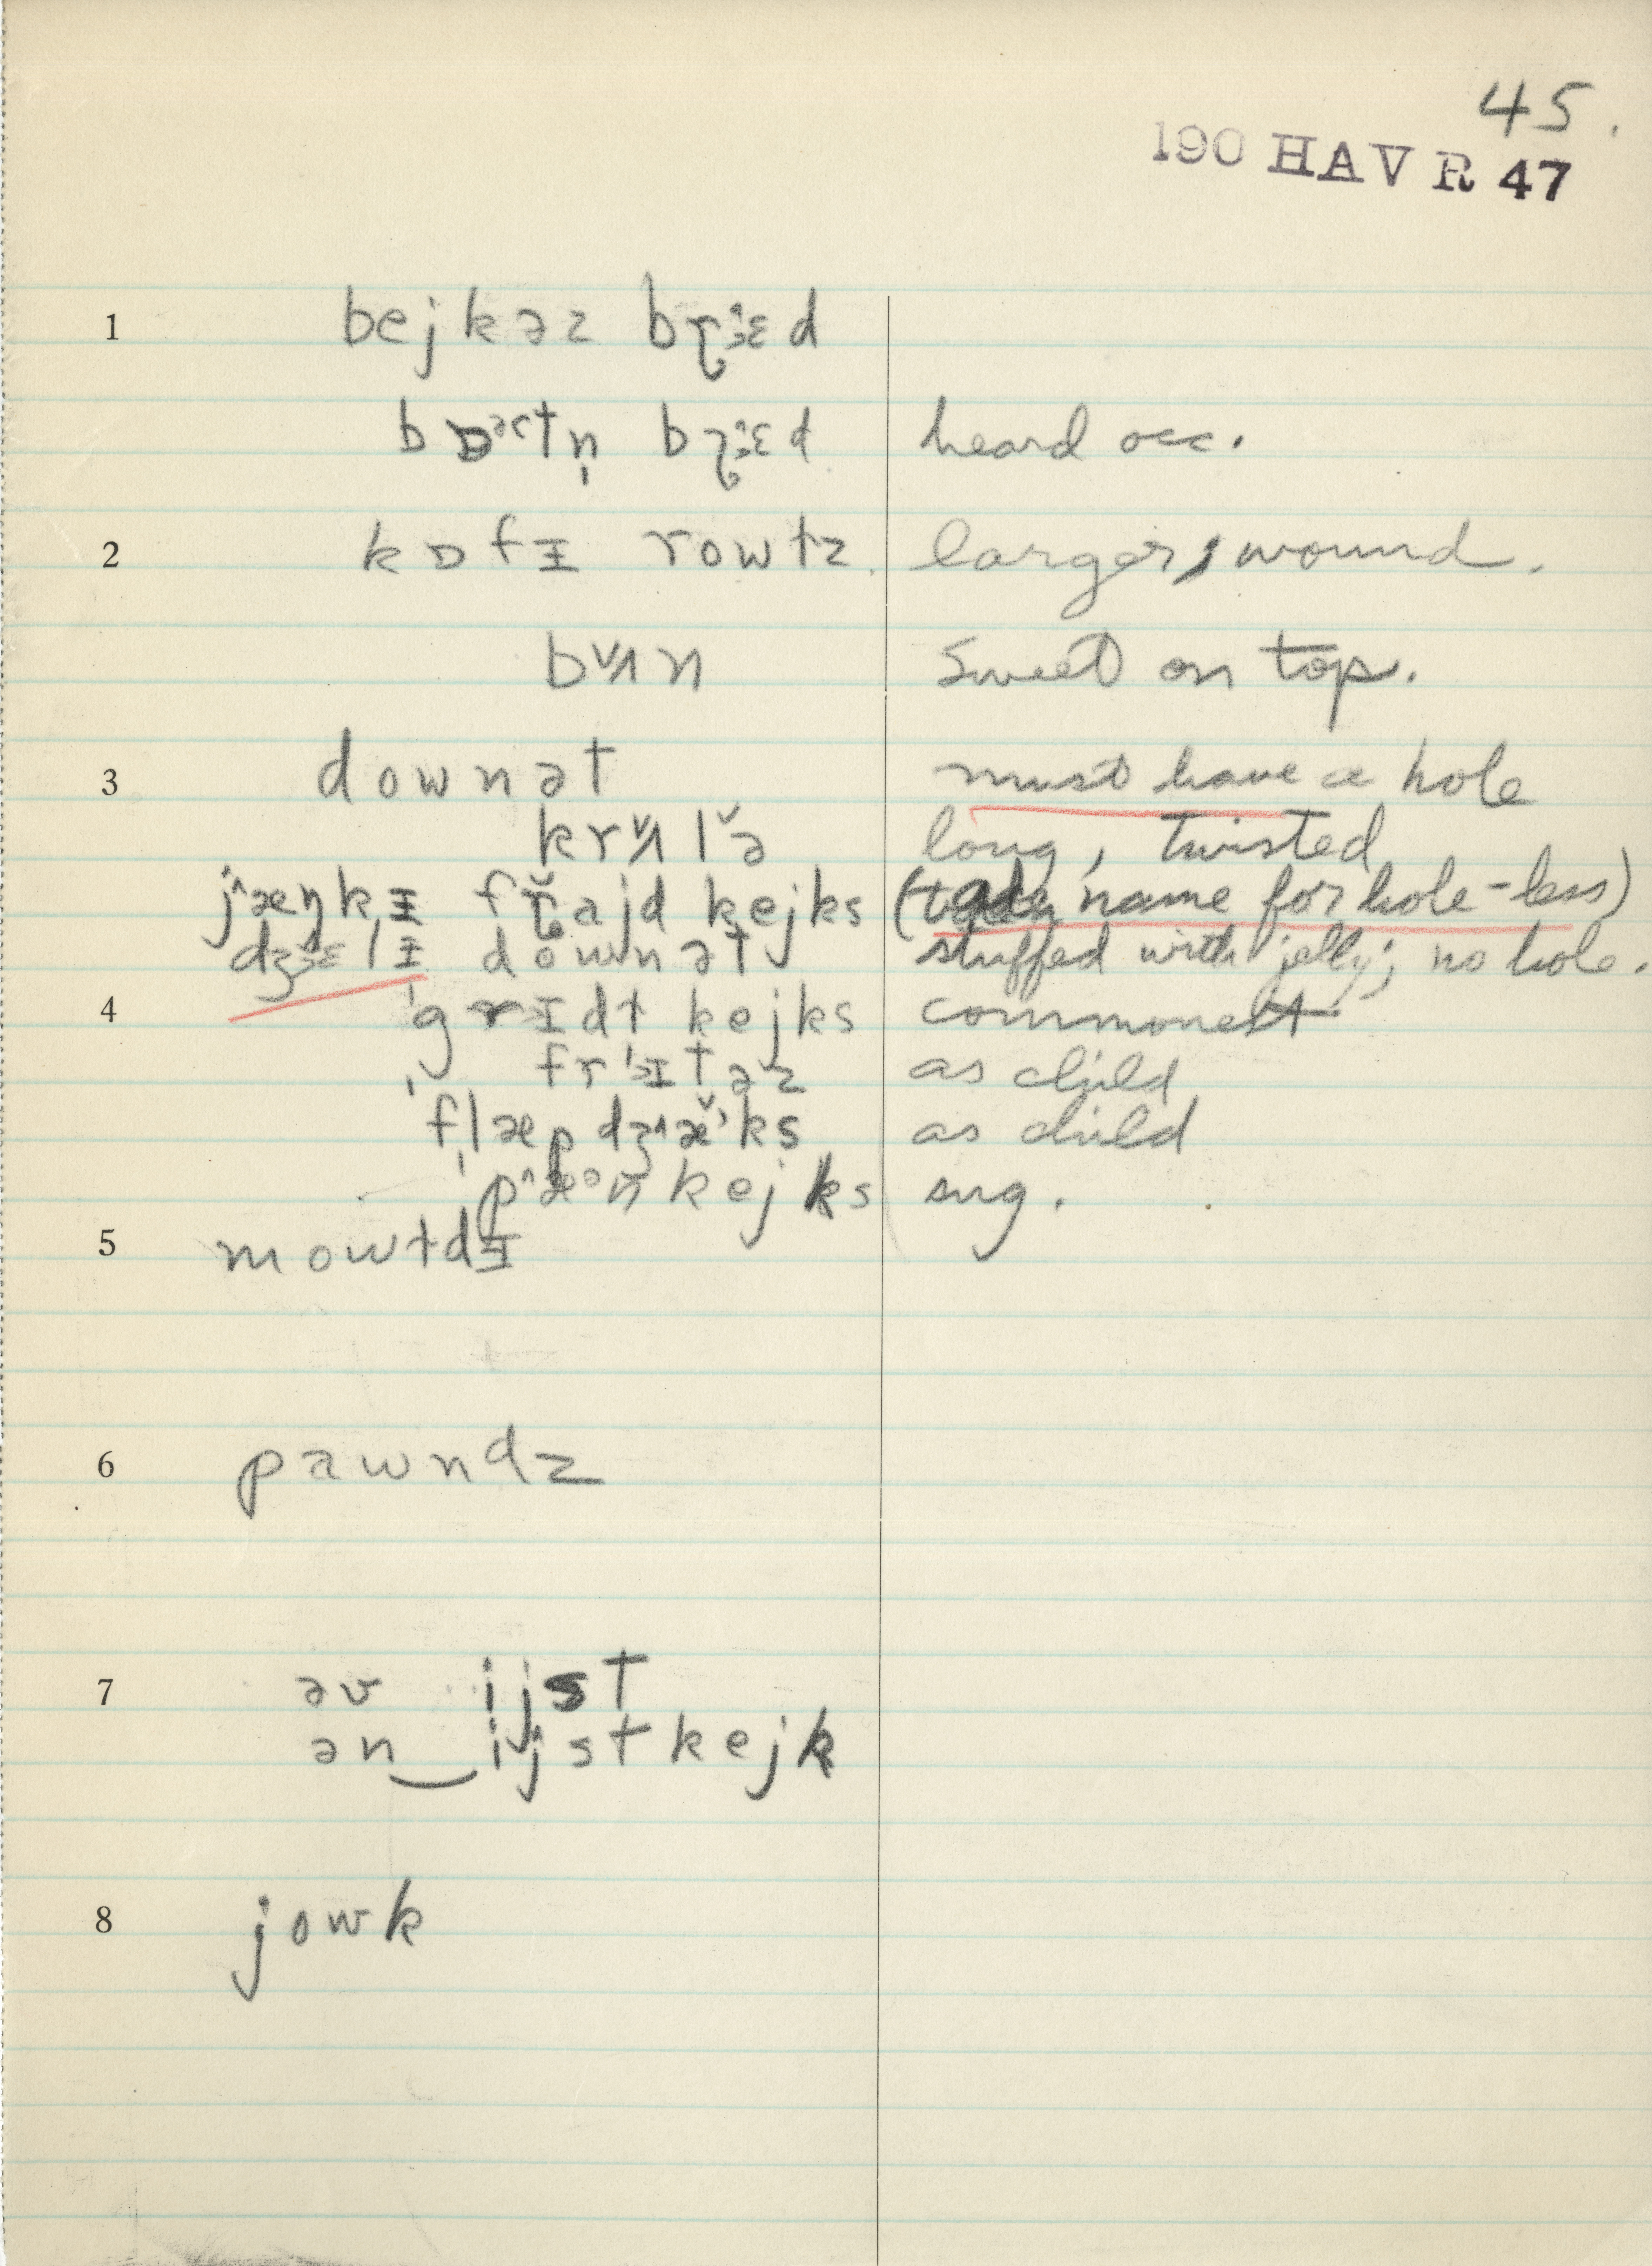 45.
190 HAV R 47
1 bejkəz bɽɛd
bɒətn̩ bɽɛd heard occ.
2 kɒfɪ rowlz. larger, wound.
bʌn sweet on top.
3 downət must have a hole
krʌlə long, twisted
jæŋkɪ frajd kejks ( name for hole-less)
dʒɛlɪ downət stuffed with jelly; no hole.
4 ˈgrɪdl kejks commonest
ˈfrɪtəz as child
ˈflæpdʒæks as child
ˈpæənkejks sug.
5 mowldɪ
6 pawndz
7 əv ijst
ən‿ijstkejk
8 jowk